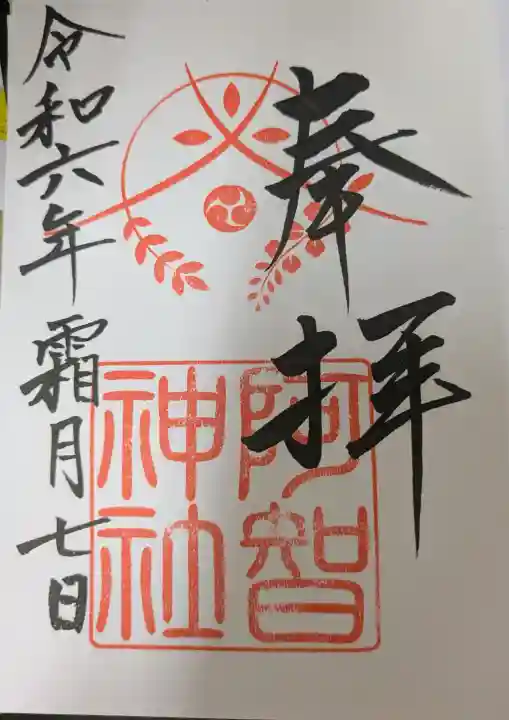 奉拝
阿智
神社
令和六年霜月七日